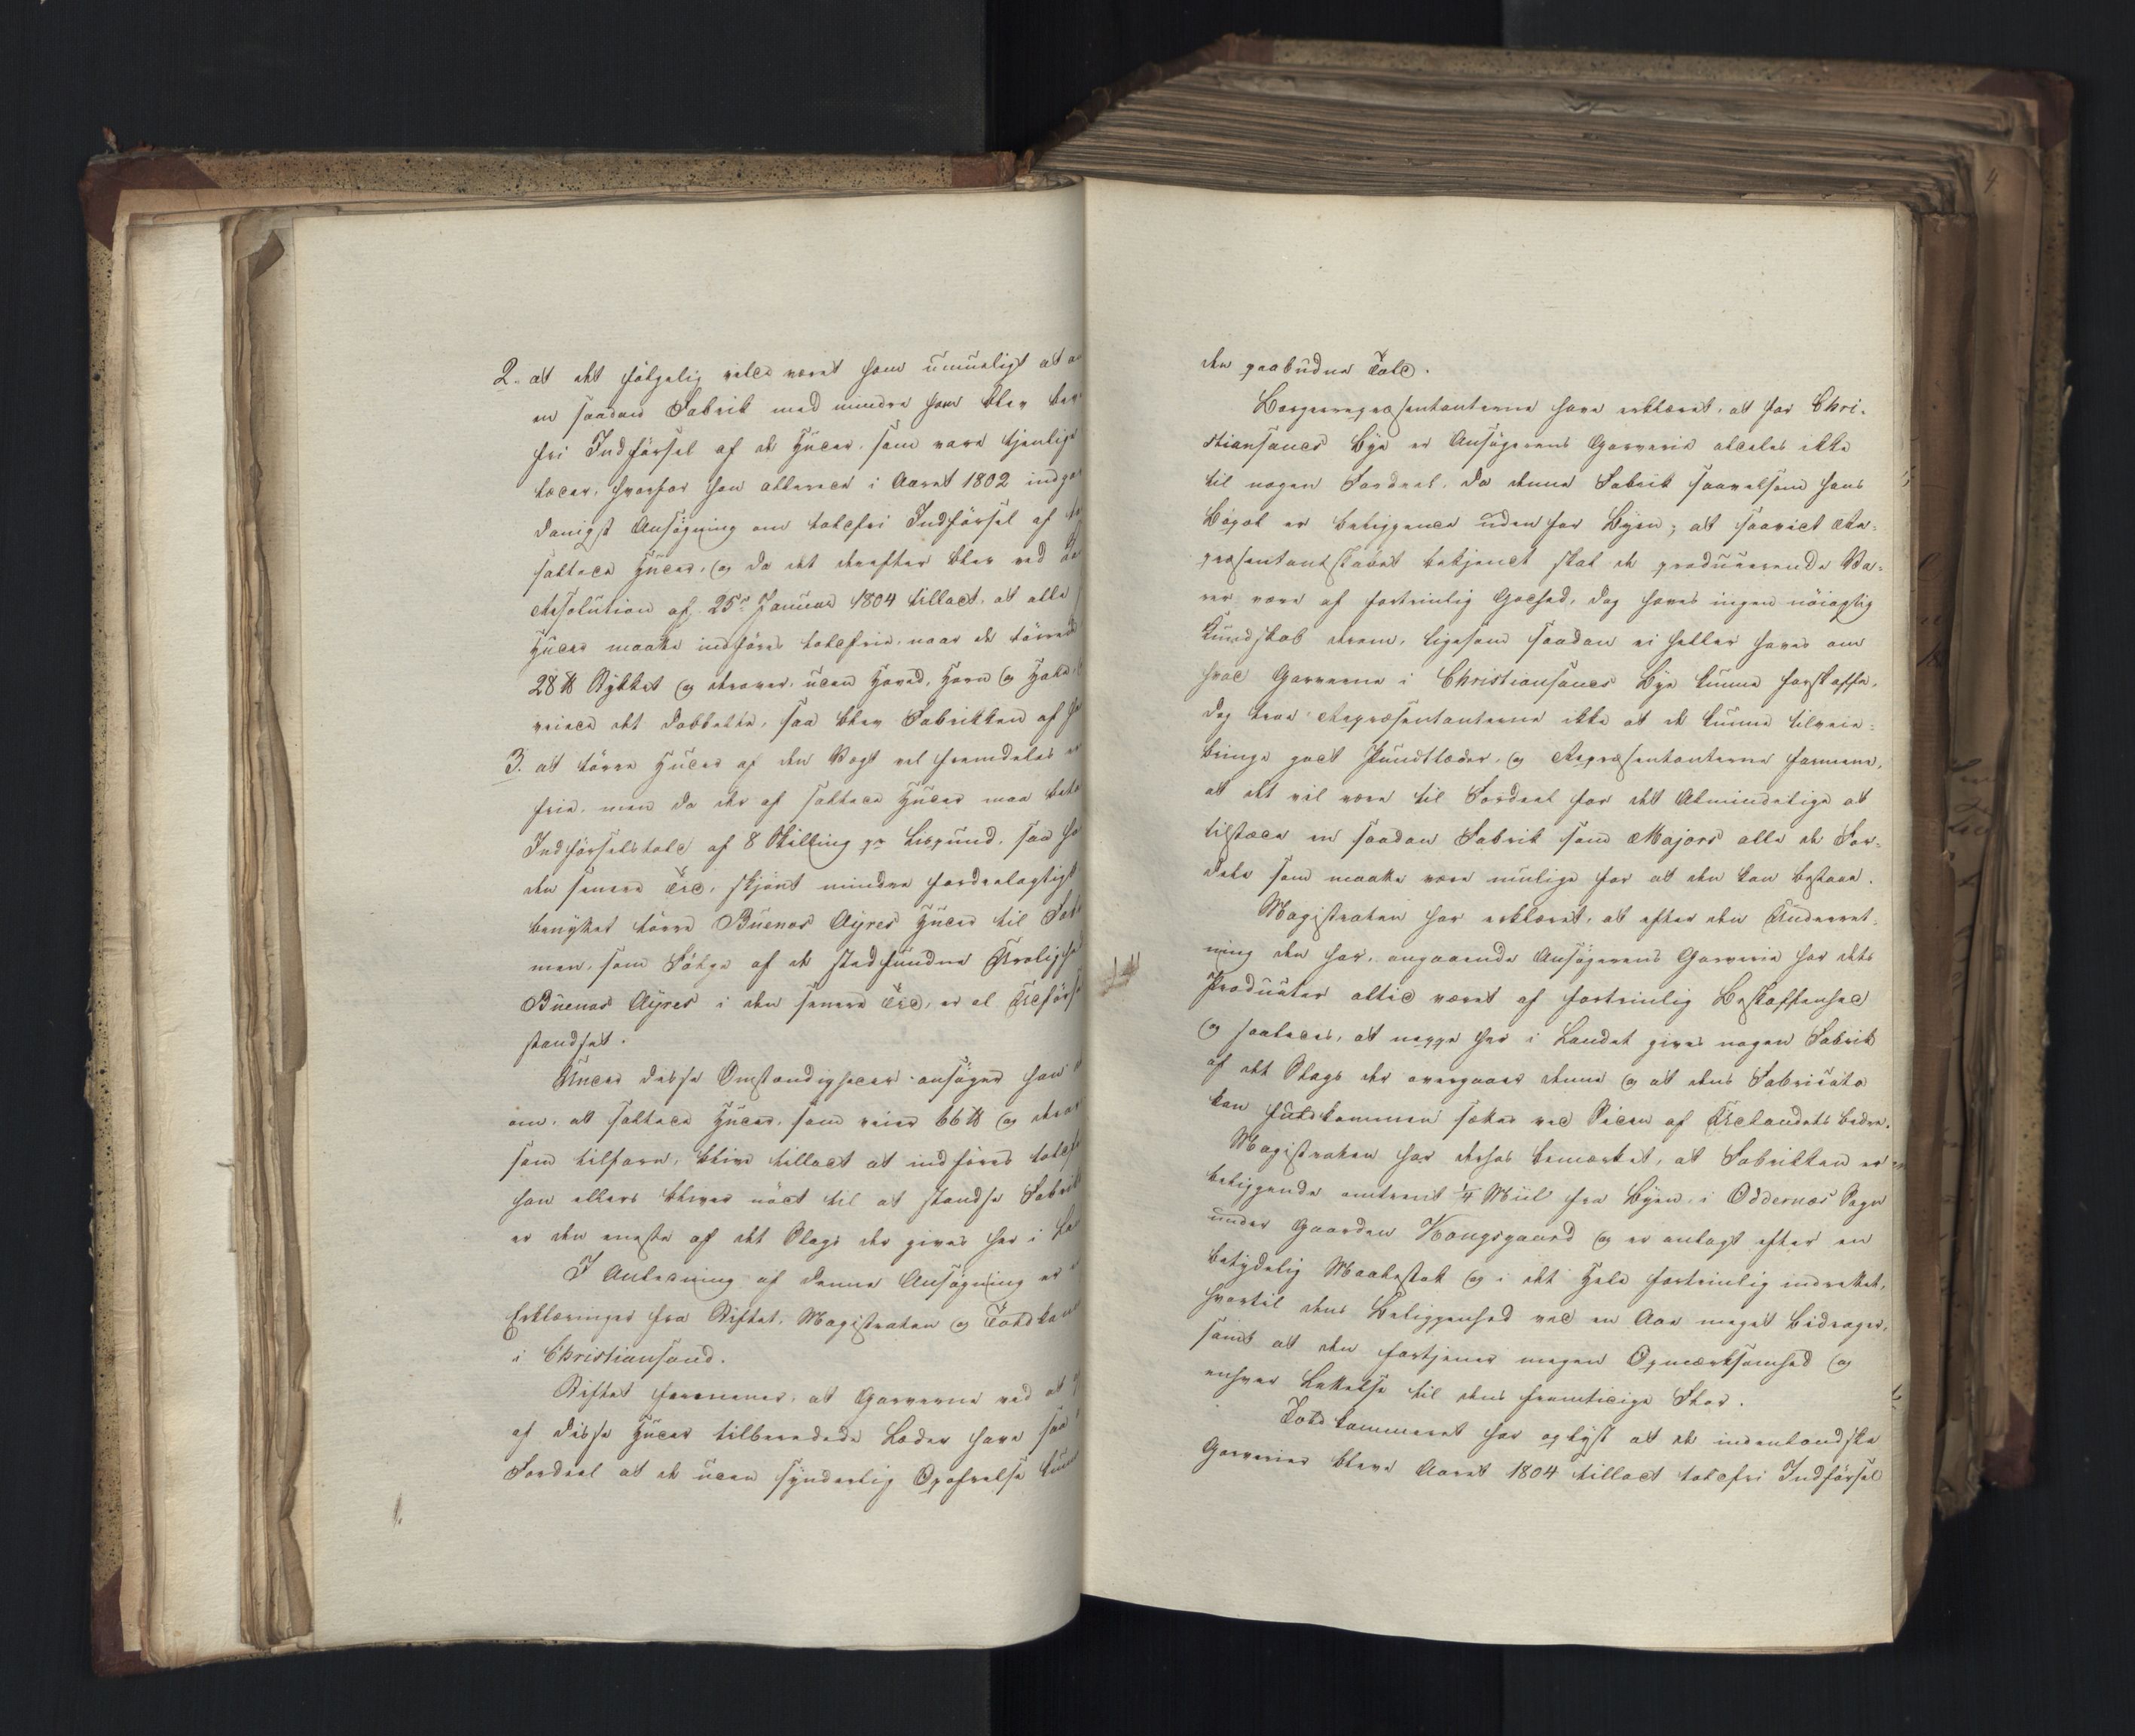 2. at det følgelig vilde været ham umueligt at
en saadan Fabrik med mindre ham blev
fri Indførsel af de Huder, som vare tjenlige
læder, hvorfor han allerede i Aaret 1802
danigst Ansøgning om toldfri Indførsel af
saltede Huder, og da det derefter blev ved
Resolution af 25de Januar 1804 tilladt, at alle
Huder maatte indføres toldfrie, naar de tørrede
28 ℔ Stykket og derover, uden Hoved, Horn og Hale,
veiede det dobbelte, saa blev Fabrikken af
3. at tørre Huder af den Vægt vel fremdeles
frie, men da der af saltede Huder maa
Indførselstold af 8 Skilling pr Lispund, saa
den senere Tid, skjønt mindre fordeelagtigt
benyttet tørre Buenos Ayres Huder til
men, som Følge af de stedfundne
Buenos Ayres i den senere Tid, er al
standset.
Under disse Omstændigheder ansøger han
om, at saltede Huder, som veier 66 ℔ og
som tilforn, blive tilladt at indføres
han ellers bliver nødt til at standse
er den eneste af det Slags der gives her i
I Anledning af denne Ansøgning er
Erklæringer fra Stiftet, Magistraten og
i Christiansand.
Stiftet formener, at Garverne ved
af disse Huder tilberedede Læder have saa
Fordeel at de uden synderlig Opofrelse
den paabudne Told.
Borgerrepræsentanterne have erklæret, at for Chri-
stiansands Bye er Ansøgerens Garverie aldeles ikke
til nogen Fordeel, da denne Fabrik saavelsom hans
Bopæl er beliggende uden for Byen; at saavidt Re-
præsentantskabet bekjendt skal de producerende Va-
rer være af fortrinlig Godhed, dog haves ingen nøiagtig
Kundskab derom, ligesom saadan ei heller haves om
hvad Garverne i Christiansands Bye kunne forskaffe,
dog troe Repræsentanterne ikke at de kunne tilveie-
bringe godt Pundtlæder, og Repræsentanterne formene,
at det vil være til Fordeel for det Almindelige at
tilstæde en saadan Fabrik som Majors alle de For-
dele som maatte være mulige for at den kan bestaae.
Magistraten har erklæret, at efter den Underret-
ning den har, angaaende Ansøgerens Garverie har dets
Producter altid været af fortrinlig Beskaffenhed
og saaledes, at neppe her i Landet gives nogen Fabrik
af det Slags der overgaaer denne og at dens Fabricata
kan fuldkommen sættes ved Siden af Udlandets bedre.
Magistraten har derhos bemærket, at Fabrikken er
beliggende omtrent ¼ Miil fra Byen, i Oddernæs Sogn
under Gaarden Kongsgaard og er anlagt efter en
betydelig Maalestok og i det Hele fortrinlig indrettet,
hvortil dens Beliggenhed ved en Aae meget bidrager,
samt at den fortjener megen Opmærksomhed og
enhver Lettelse til dens fremtidige Flor.
Toldkammeret har oplyst at de indenlandske
Garverier bleve Aaret 1804 tilladt toldfri Indførsel